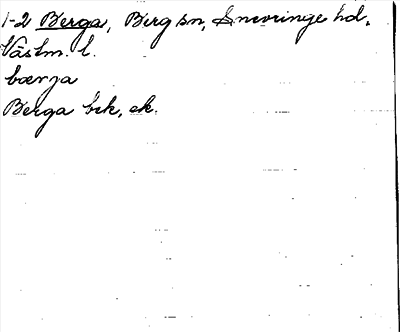 1-2 Berga, Berg sn, Snevringe hd.
Västm. l.
bærja
Berga bck, ek.